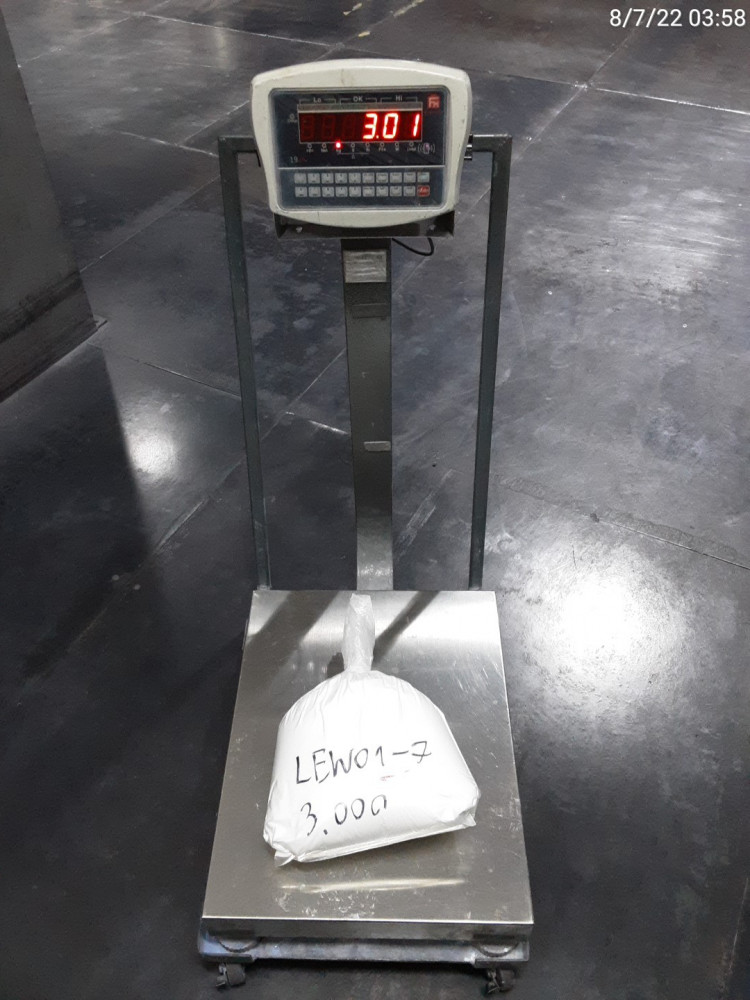 8/7/22 03:58
Lo OK Hi
3.01
19
LEW01-7
3.000